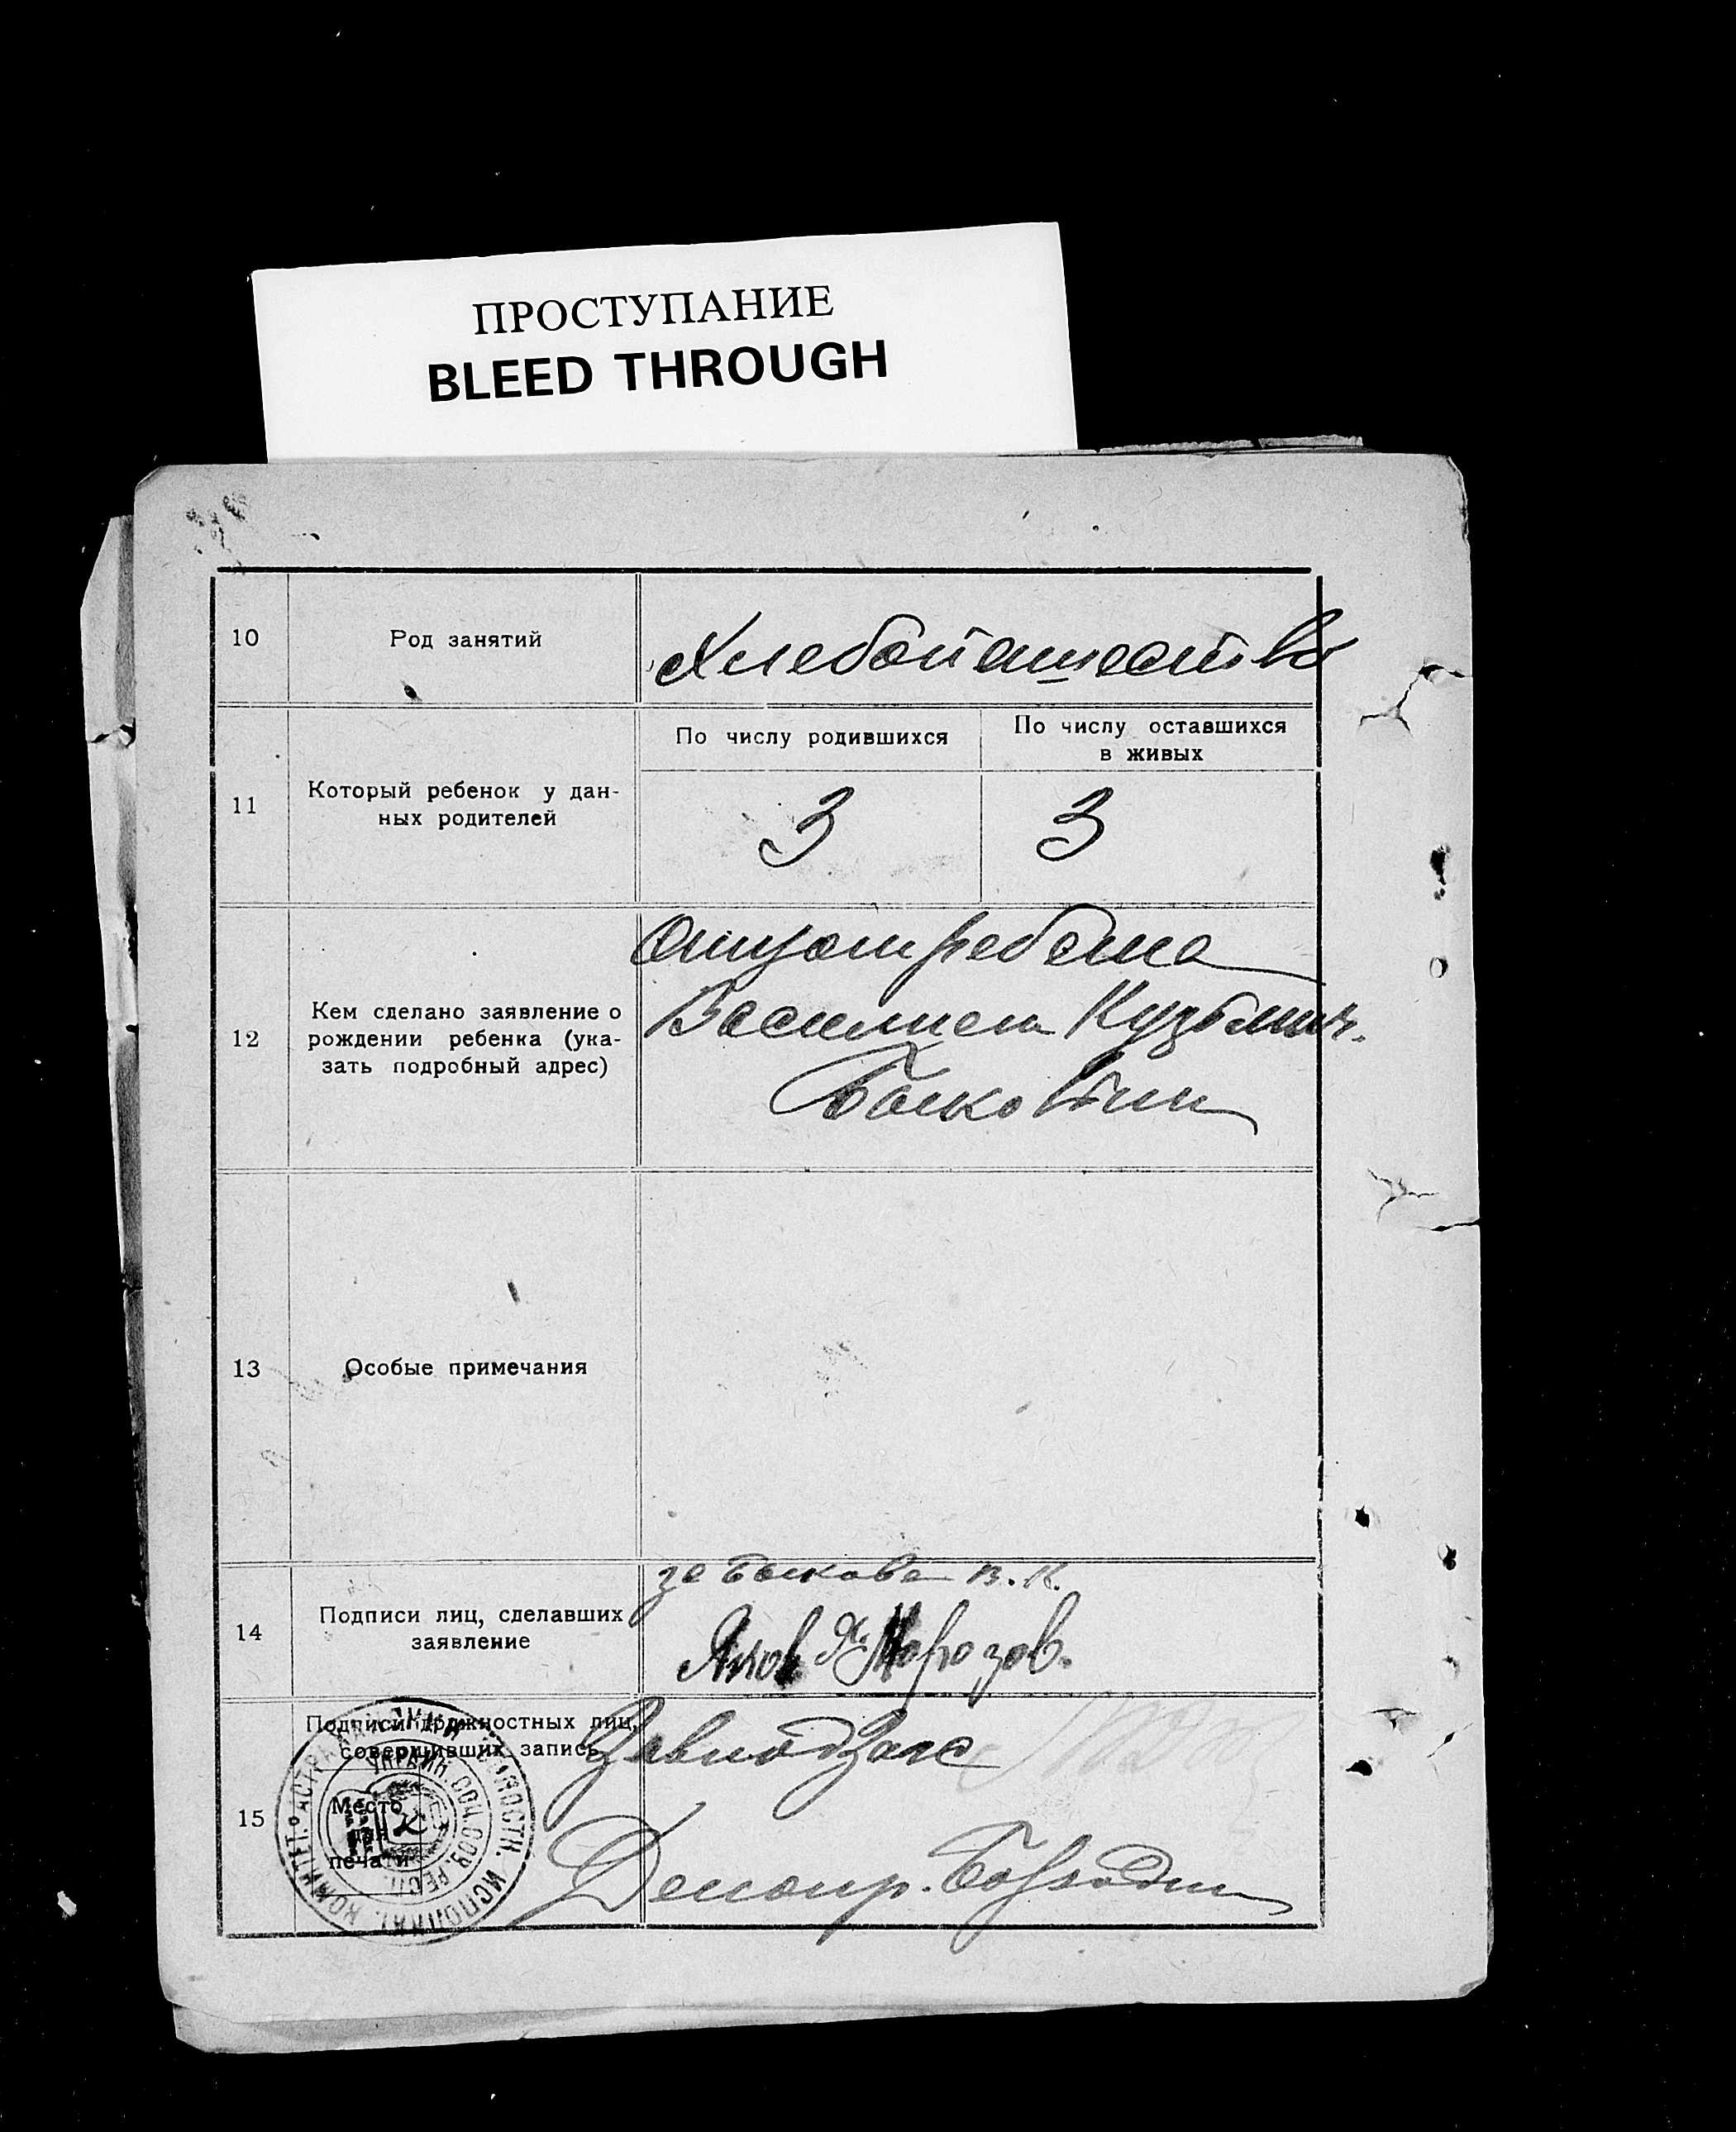 ПРОСТУПАНИЕ
BLEED THROUGH
10
Род занятий
Хлебопашество
11
Который ребенок у дан-
ных родителей
По числу родившихся
По числу оставшихся
в живых
3
3
12
Кем сделано заявление о
рождении ребенка (ука-
зать подробный адрес)
Отцом ребенка
Василием Кузьмич.
Быковым
13
Особые примечания
14
Подписи лиц, сделавших
заявление
за Быкова В. К.
Морозов.
15
Подписи должностных лиц,
совершивших запись
Место
для
печати
УКРАИН. СОЦ. СОВ. РЕСП.
ИСПОЛНИТ. КОМИТЕТ
Делопр.